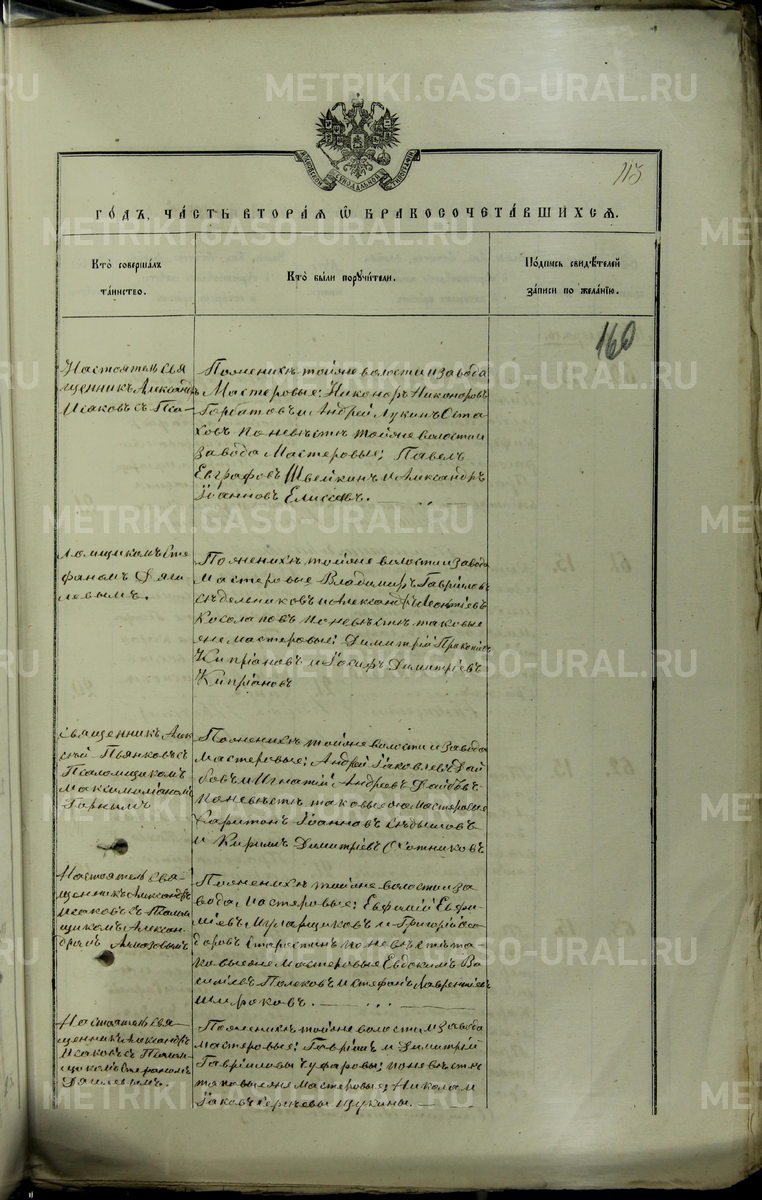 METRIKI.GASO-URAL.RU
МОСКОВСКОЙ СѴНОДАЛЬНОЙ ТИПОГРАФІИ
113
ГО́ДЪ, ЧА́СТЬ ВТОРА́Я Ѡ҆ БРАКОСОЧЕТА́ВШИХСЯ.
Кто̀ соверша́лъ
та́инство.
Кто̀ бы́ли поручи́тели.
По́дпись свидѣ́телей
за́писи по жела́нію.
160
Настоятель Свя
щенникъ Александръ
Исаковъ съ Пса-
По женихѣ той же волости и завода
Мастеровые: Никаноръ Никаноровъ
Горбатовъ и Андрей Лукинъ Ста
ховъ по невѣстѣ той же волости и
завода Мастеровые; Павелъ
Евграфовъ Швейкинъ и Александръ
Іоанновъ Елисѣевъ.
ломщикомъ Сте
фаномъ
По женихѣ той же волости и завода
Мастеровые Владимиръ Гавріиловъ
Сѣдельниковъ и Александръ Леонтіевъ
Косолаповъ по невѣстѣ таковые
же Мастеровые: Димитрій Прокопіевъ
Кипріановъ и Іосифъ Димитріевъ
Кипріановъ
Священникъ Алек
сѣй Пьянковъ съ
Псаломщикомъ
Максимиліаномъ
Горнымъ
По женихѣ той же волости и завода
Мастеровые; Андрей Іаковлевъ
и Игнатій Андреевъ
по невѣстѣ таковые же Мастеровые
Харитонъ Іоанновъ
и Кириллъ Димитріевъ Охотниковъ
Настоятель Свя-
щенникъ Александръ
Исаковъ съ Псалом
щикомъ Алексан-
дромъ Алмазовымъ
По женихѣ той же волости и за
вода Мастеровые: Евфимій Евфи-
міевъ и Григорій
Старостинъ по невѣстѣ та
ковые же Мастеровые Евдокимъ Ва
силіевъ Полековъ и Стефанъ Лаврентіевъ
Широковъ.
Настоятель Свя-
щенникъ Александръ
Исаковъ съ Псалом
щикомъ Стефаномъ
По женихѣ той же волости и завода
Мастеровые: Гавріилъ и Димитрій
Гавріиловы Чуфаровы; по невѣстѣ
таковые же Мастеровые; Николай
Іаковъ Сергіевы Щукины.